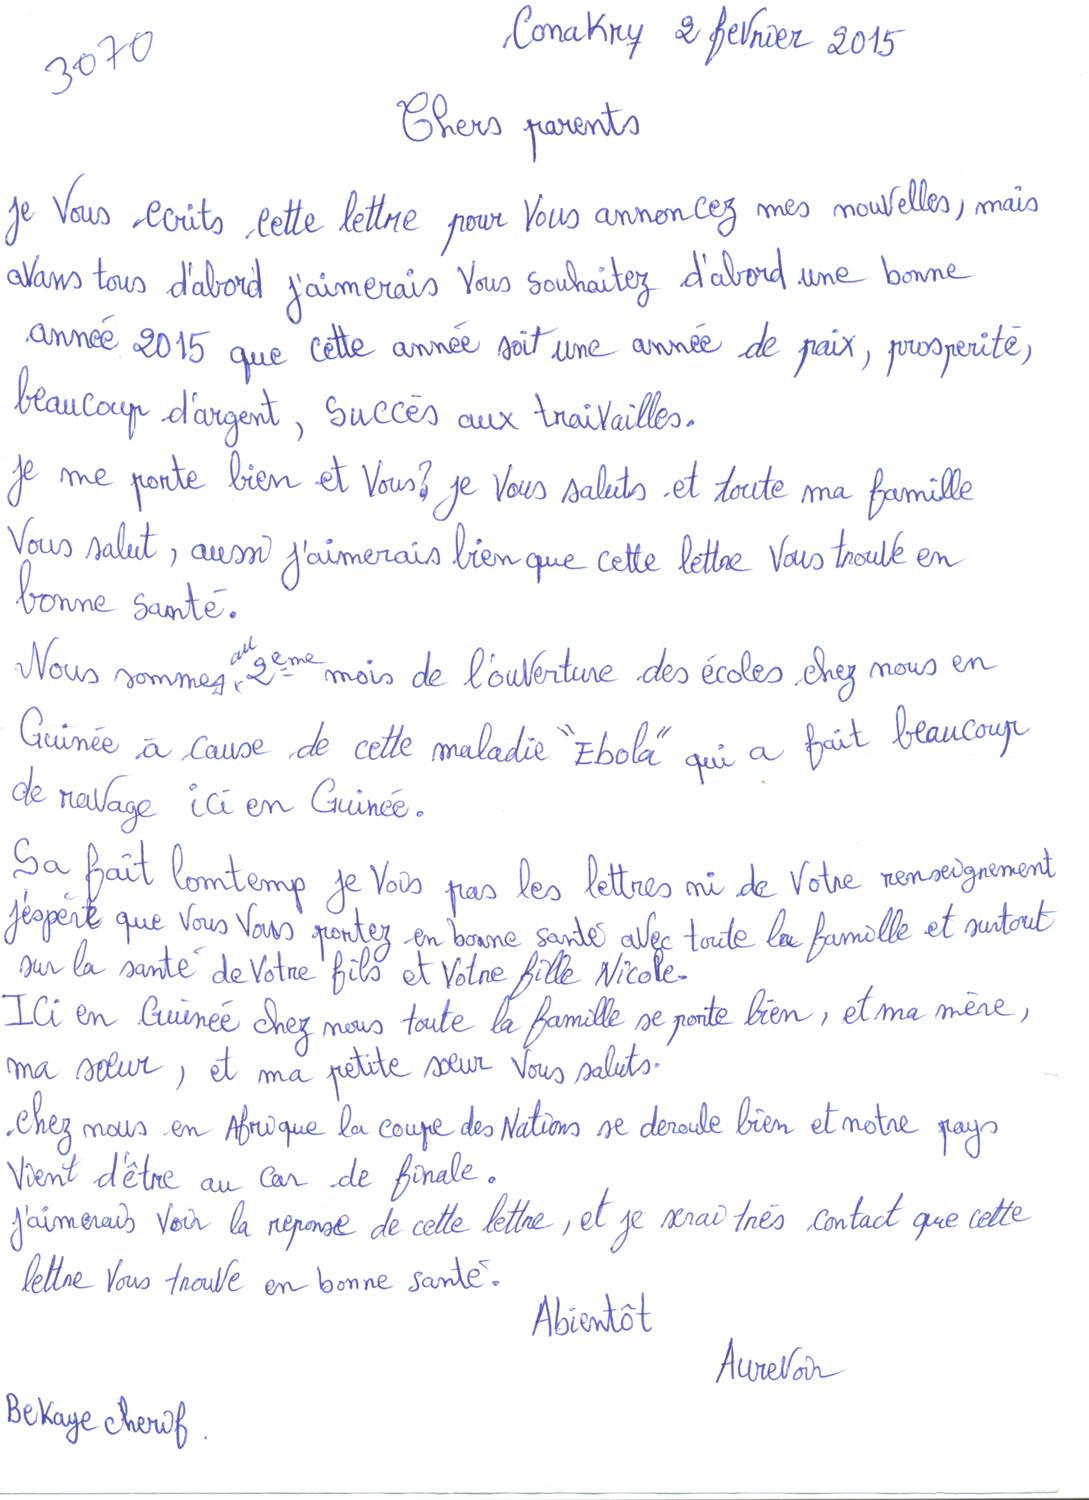 3070
Conakry 2 fevrier 2015
Chers parents
je vous ecrits cette lettre pour vous annoncez mes nouvelles, mais
avans tous d'abord j'aimerais vous souhaitez d'abord une bonne
année 2015 que cette année soit une année de paix, prosperité,
beaucoup d'argent, succès aux traivailles.
je me porte bien et vous? je vous saluts et toute ma famille
vous salut, aussi j'aimerais bien que cette lettre vous trouve en
bonne santé.
Nous sommes au 2eme mois de l'ouverture des écoles chez nous en
Guinée à cause de cette maladie "Ebola" qui a fait beaucoup
de ravage ici en Guinée.
Sa fait lomtemp je vois pas les lettres ni de votre renseignement
j'espère que vous vous portez en bonne santé avec toute la famille et surtout
sur la santé de votre fils et votre fille Nicole.
Ici en Guinée chez nous toute la famille se porte bien, et ma mère,
ma sœur, et ma petite sœur vous saluts.
chez nous en Afrique la coupe des Nations se deroule bien et notre pays
vient d'être au car de finale.
j'aimerais voir la reponse de cette lettre, et je serai très contact que cette
lettre vous trouve en bonne santé.
Abientôt
Aurevoir
Bekaye cherif.